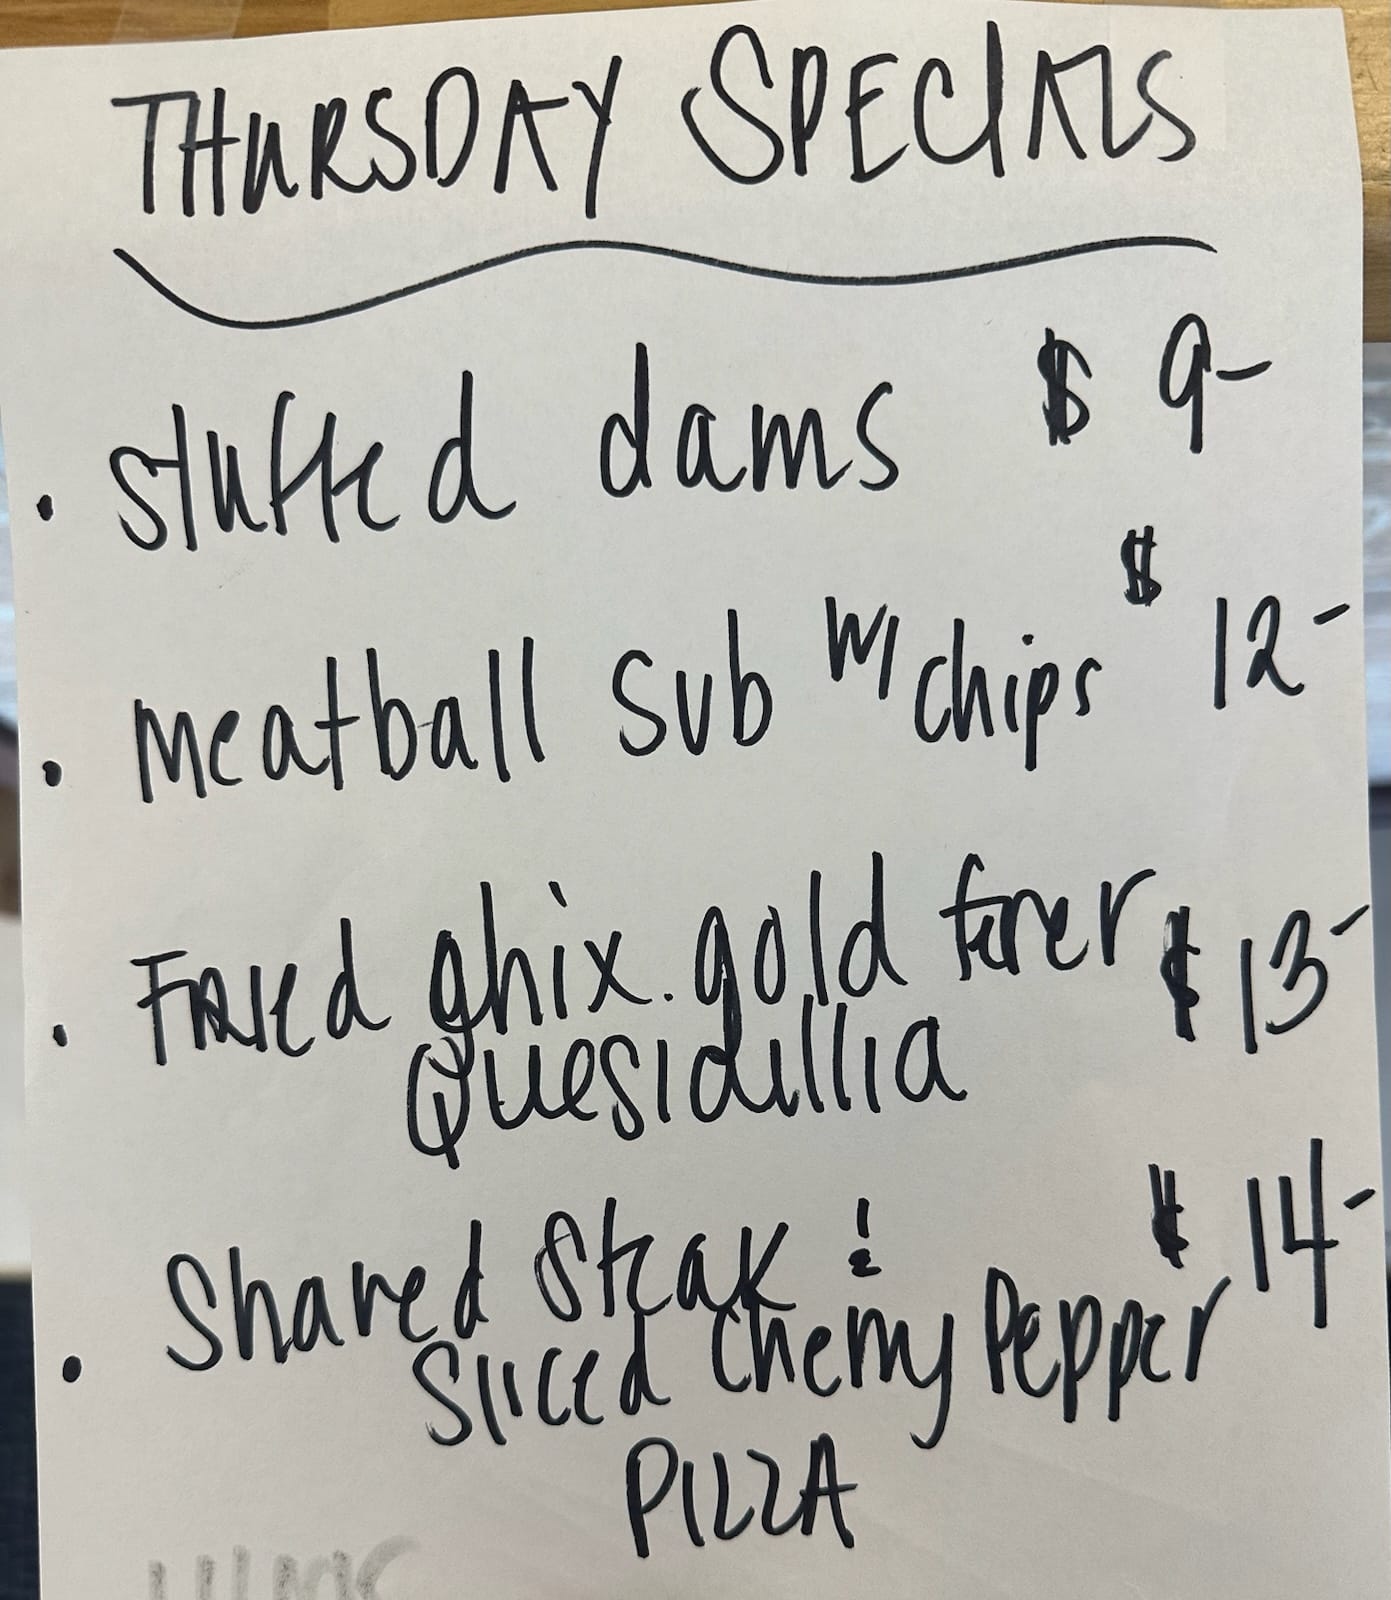 THURSDAY SPECIALS
• stuffed clams $ 9-
• meatball sub w/ chips $ 12-
• Fried chix. gold fever $ 13-
Quesidillia
• Shaved Steak & $ 14-
Sliced Cherry Pepper
PIZZA